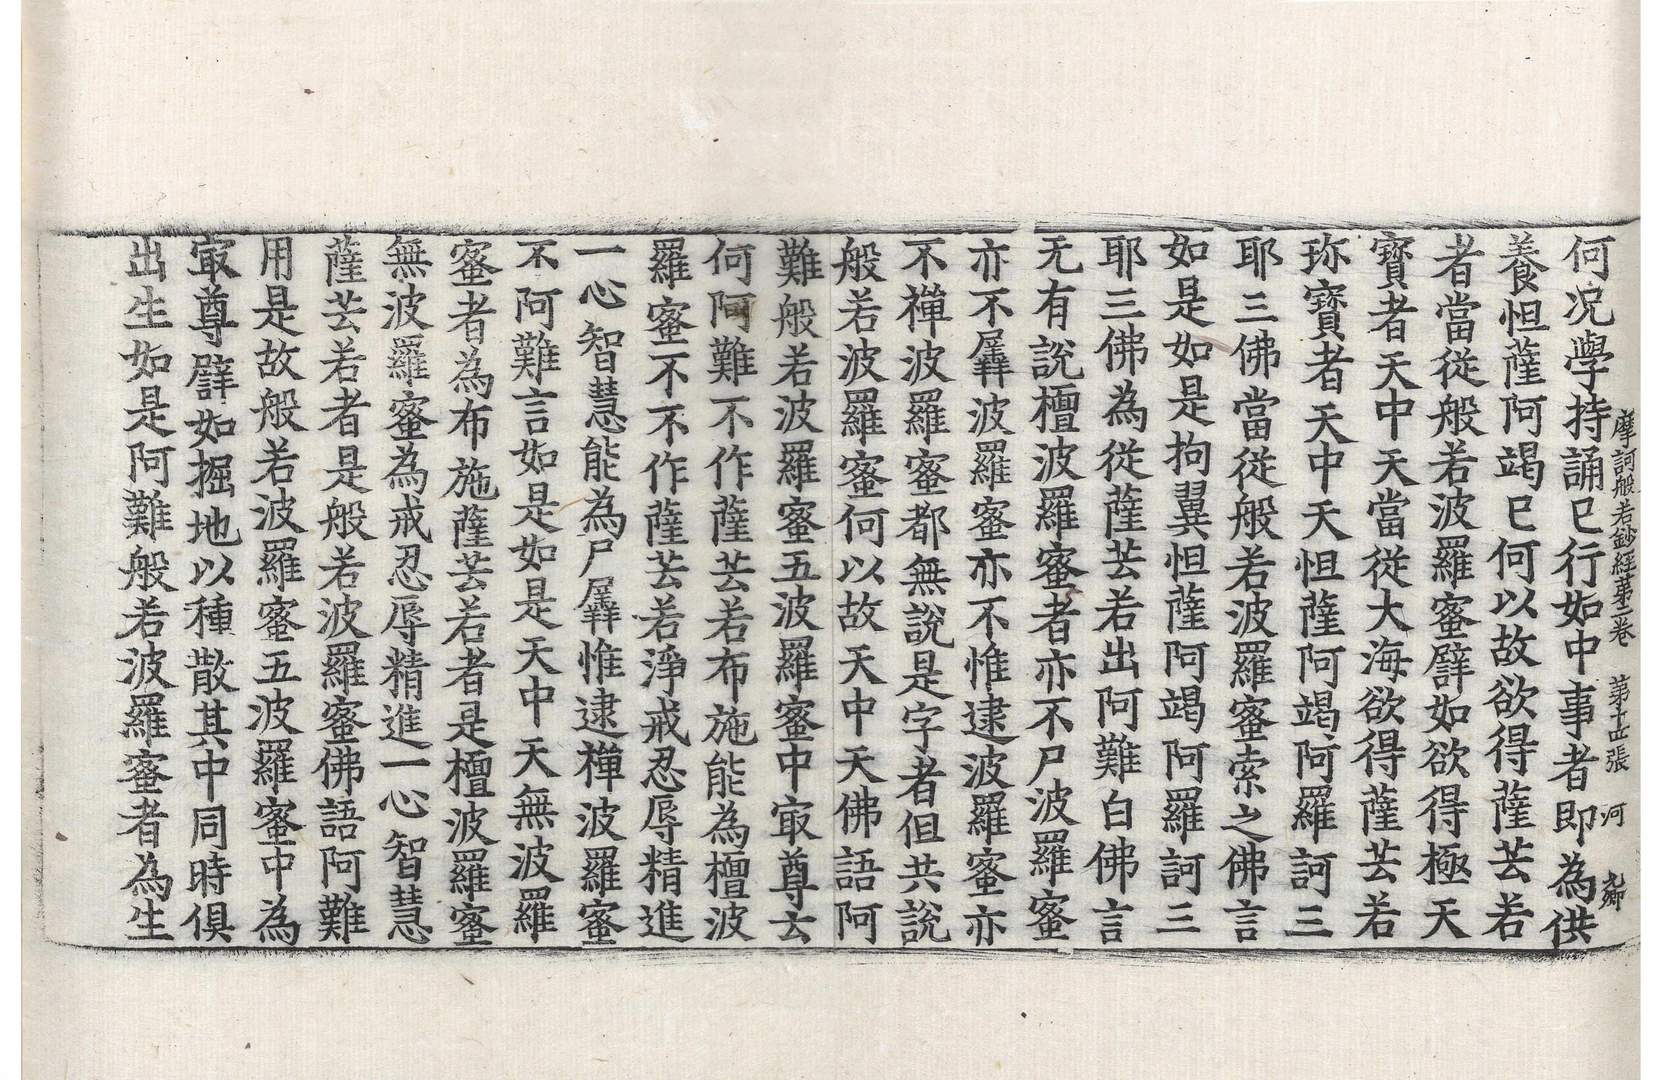 摩訶般若鈔經第二卷　第十四張　河
何况學持誦已行如中事者即為供
養怛薩阿竭已何以故欲得薩芸若
者當從般若波羅蜜譬如欲得極天
寶者天中天當從大海欲得薩芸若
珎寶者天中天怛薩阿竭阿羅訶三
耶三佛當從般若波羅蜜索之佛言
如是如是拘翼怛薩阿竭阿羅訶三
耶三佛為從薩芸若出阿難白佛言
无有說檀波羅蜜者亦不尸波羅蜜
亦不羼波羅蜜亦不惟逮波羅蜜亦
不禪波羅蜜都無說是字者但共說
般若波羅蜜何以故天中天佛語阿
難般若波羅蜜五波羅蜜中㝡尊云
何阿難不作薩芸若布施能為檀波
羅蜜不不作薩芸若淨戒忍辱精進
一心智慧能為尸羼惟逮禪波羅蜜
不阿難言如是如是天中天無波羅
蜜者為布施薩芸若者是檀波羅蜜
無波羅蜜為戒忍辱精進一心智慧
薩芸若者是般若波羅蜜佛語阿難
用是故般若波羅蜜五波羅蜜中為
㝡尊譬如掘地以種散其中同時俱
出生如是阿難般若波羅蜜者為生